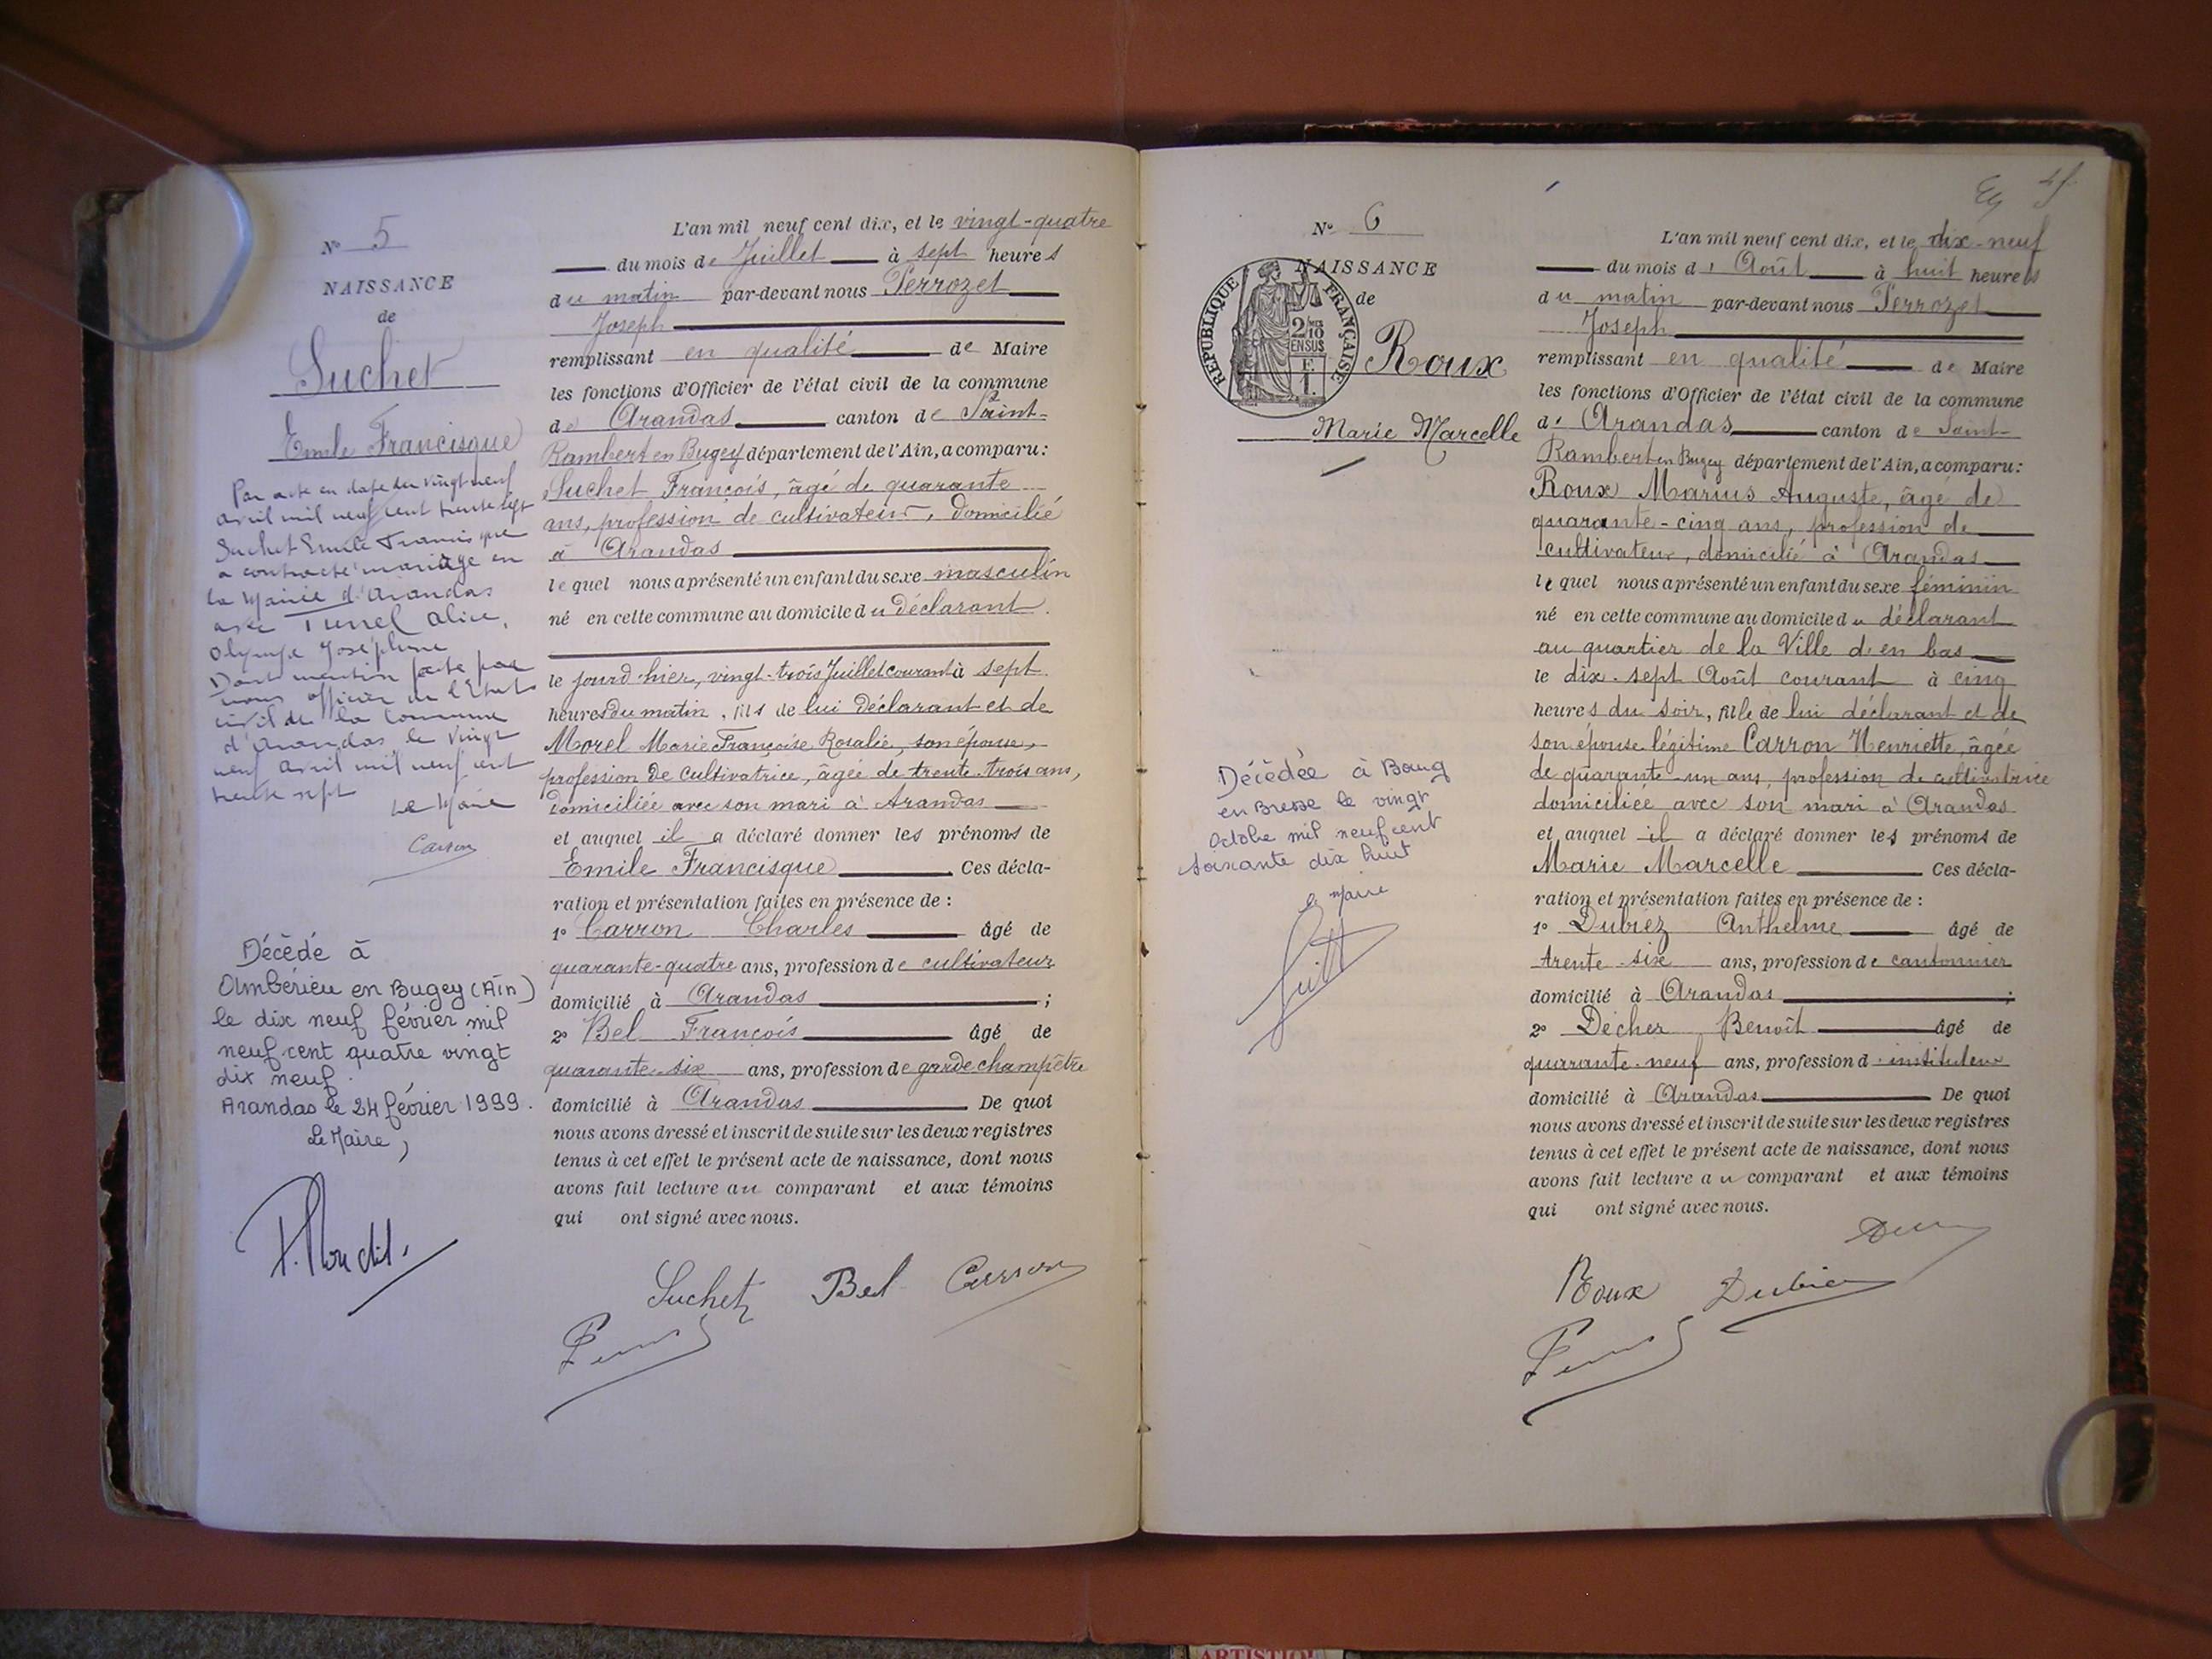 N° 5
NAISSANCE
de
Suchet
Emile Francisque
Par acte en date du vingt neuf
avril mil neuf cent trente sept
Suchet Emile Francisque
a contracté mariage en
la Mairie d'Arandas
avec Tunel Alice,
Olympe Joséphine
Dont mention faite par
nous officier de l'Etat
civil de la Commune
d'Arandas le vingt
neuf avril mil neuf cent
trente sept
Le Maire
Carron
Décédé à
Ambérieu en Bugey (Ain)
le dix neuf février mil
neuf cent quatre vingt
dix neuf.
Arandas le 24 février 1999.
Le Maire,
L'an mil neuf cent dix, et le vingt-quatre
du mois de Juillet à sept heures
du matin par-devant nous Perrozet
Joseph
remplissant en qualité de Maire
les fonctions d'Officier de l'état civil de la commune
de Arandas canton de Saint-
Rambert en Bugey département de l'Ain, a comparu :
Suchet François, âgé de quarante
ans, profession de cultivateur, domicilié
à Arandas
lequel nous a présenté un enfant du sexe masculin
né en cette commune au domicile du déclarant.
le jourd'hier, vingt-trois Juillet courant à sept
heures du matin, fils de lui déclarant et de
Morel Marie Françoise Rosalie, son épouse,
profession de cultivatrice, âgée de trente-trois ans,
domiciliée avec son mari à Arandas
et auquel il a déclaré donner les prénoms de
Emile Francisque Ces décla-
ration et présentation faites en présence de :
1° Carron Charles âgé de
quarante-quatre ans, profession de cultivateur
domicilié à Arandas ;
2° Bel François âgé de
quarante-six ans, profession de garde champêtre
domicilié à Arandas De quoi
nous avons dressé et inscrit de suite sur les deux registres
tenus à cet effet le présent acte de naissance, dont nous
avons fait lecture au comparant et aux témoins
qui ont signé avec nous.
Suchet Bel Carron
N° 6
NAISSANCE
de
RÉPUBLIQUE FRANÇAISE
2/10
EN SUS
F.
1.
Roux
Marie Marcelle
Décédée à Bourg
en Bresse le vingt
Octobre mil neuf cent
soixante dix huit
le Maire
L'an mil neuf cent dix, et le dix-neuf
du mois d'Août à huit heures
du matin par-devant nous Perrozet
Joseph
remplissant en qualité de Maire
les fonctions d'Officier de l'état civil de la commune
d'Arandas canton de Saint-
Rambert en Bugey département de l'Ain, a comparu :
Roux Marius Auguste, âgé de
quarante-cinq ans, profession de
cultivateur, domicilié à Arandas
lequel nous a présenté un enfant du sexe féminin
né en cette commune au domicile du déclarant
au quartier de la Ville d'en bas
le dix-sept Août courant à cinq
heures du soir, fille de lui déclarant et de
son épouse légitime Carron Henriette, âgée
de quarante-un ans, profession de cultivatrice
domiciliée avec son mari à Arandas
et auquel il a déclaré donner les prénoms de
Marie Marcelle Ces décla-
ration et présentation faites en présence de :
1° Dubiez Anthelme âgé de
trente-six ans, profession de cantonnier
domicilié à Arandas ;
2° Decher Benoît âgé de
quarante-neuf ans, profession d'instituteur
domicilié à Arandas De quoi
nous avons dressé et inscrit de suite sur les deux registres
tenus à cet effet le présent acte de naissance, dont nous
avons fait lecture au comparant et aux témoins
qui ont signé avec nous.
Roux Dubiez